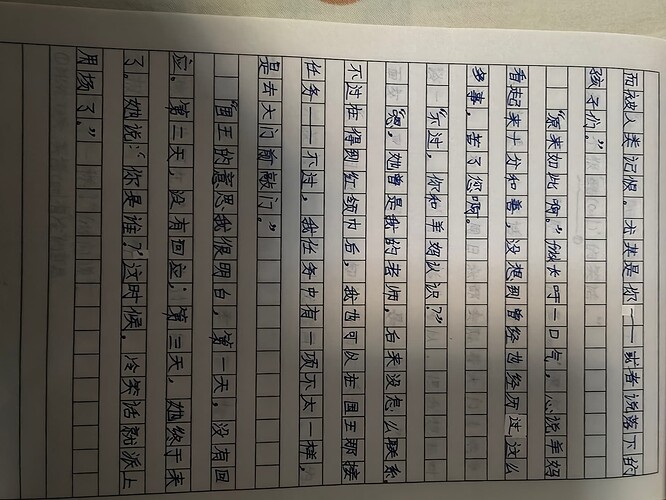 而被人类记恨。尤其是你——或者说落下的
孩子们。”
“原来如此啊。”做长吁一口气，说羊妈
看起来十分和善，没想到曾经也经历过这么
多事，苦了您啊。
“不过，你和羊妈认识？”
“嗯，她曾是我的老师，后来没怎么联系
不过在得到红领巾后，我也可以在国王那接
任务——不过，我任务中有一项不太一样，
是去大门前敲门。”
“国王的意思我很明白，第一天，没有回
应。第二天，没有回应；第三天，她终于来
了。她说：“你是谁？”这时候，冷笑话就派上
用场了。”